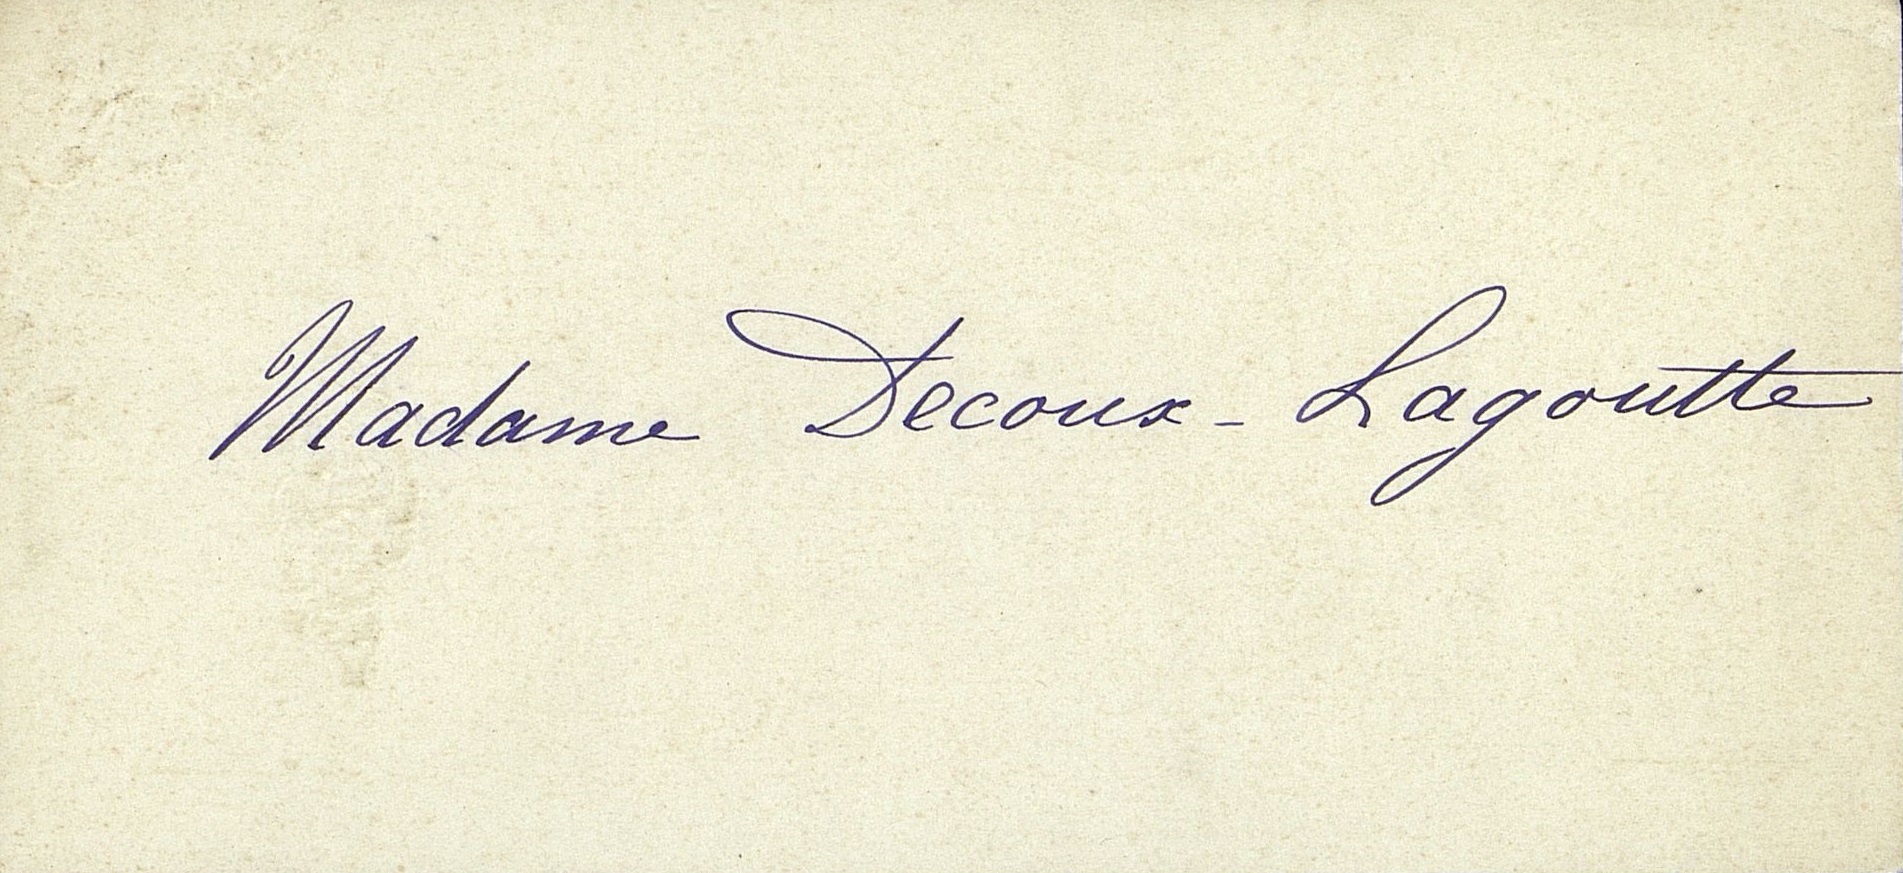 Madame Decoux - Lagoutte